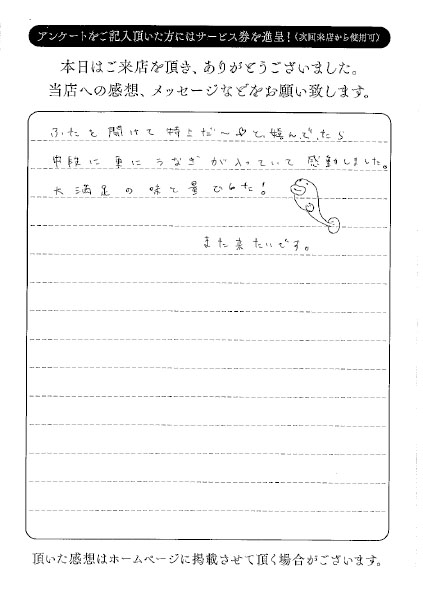 アンケートをご記入頂いた方にはサービス券を進呈！（次回来店から使用可）
本日はご来店を頂き、ありがとうございました。
当店への感想、メッセージなどをお願い致します。
ふたを開けて特上だ～♡と喜んでたら
中段に更にうなぎが入っていて感動しました。
大満足の味と量でした！
また来たいです。
頂いた感想はホームページに掲載させて頂く場合がございます。